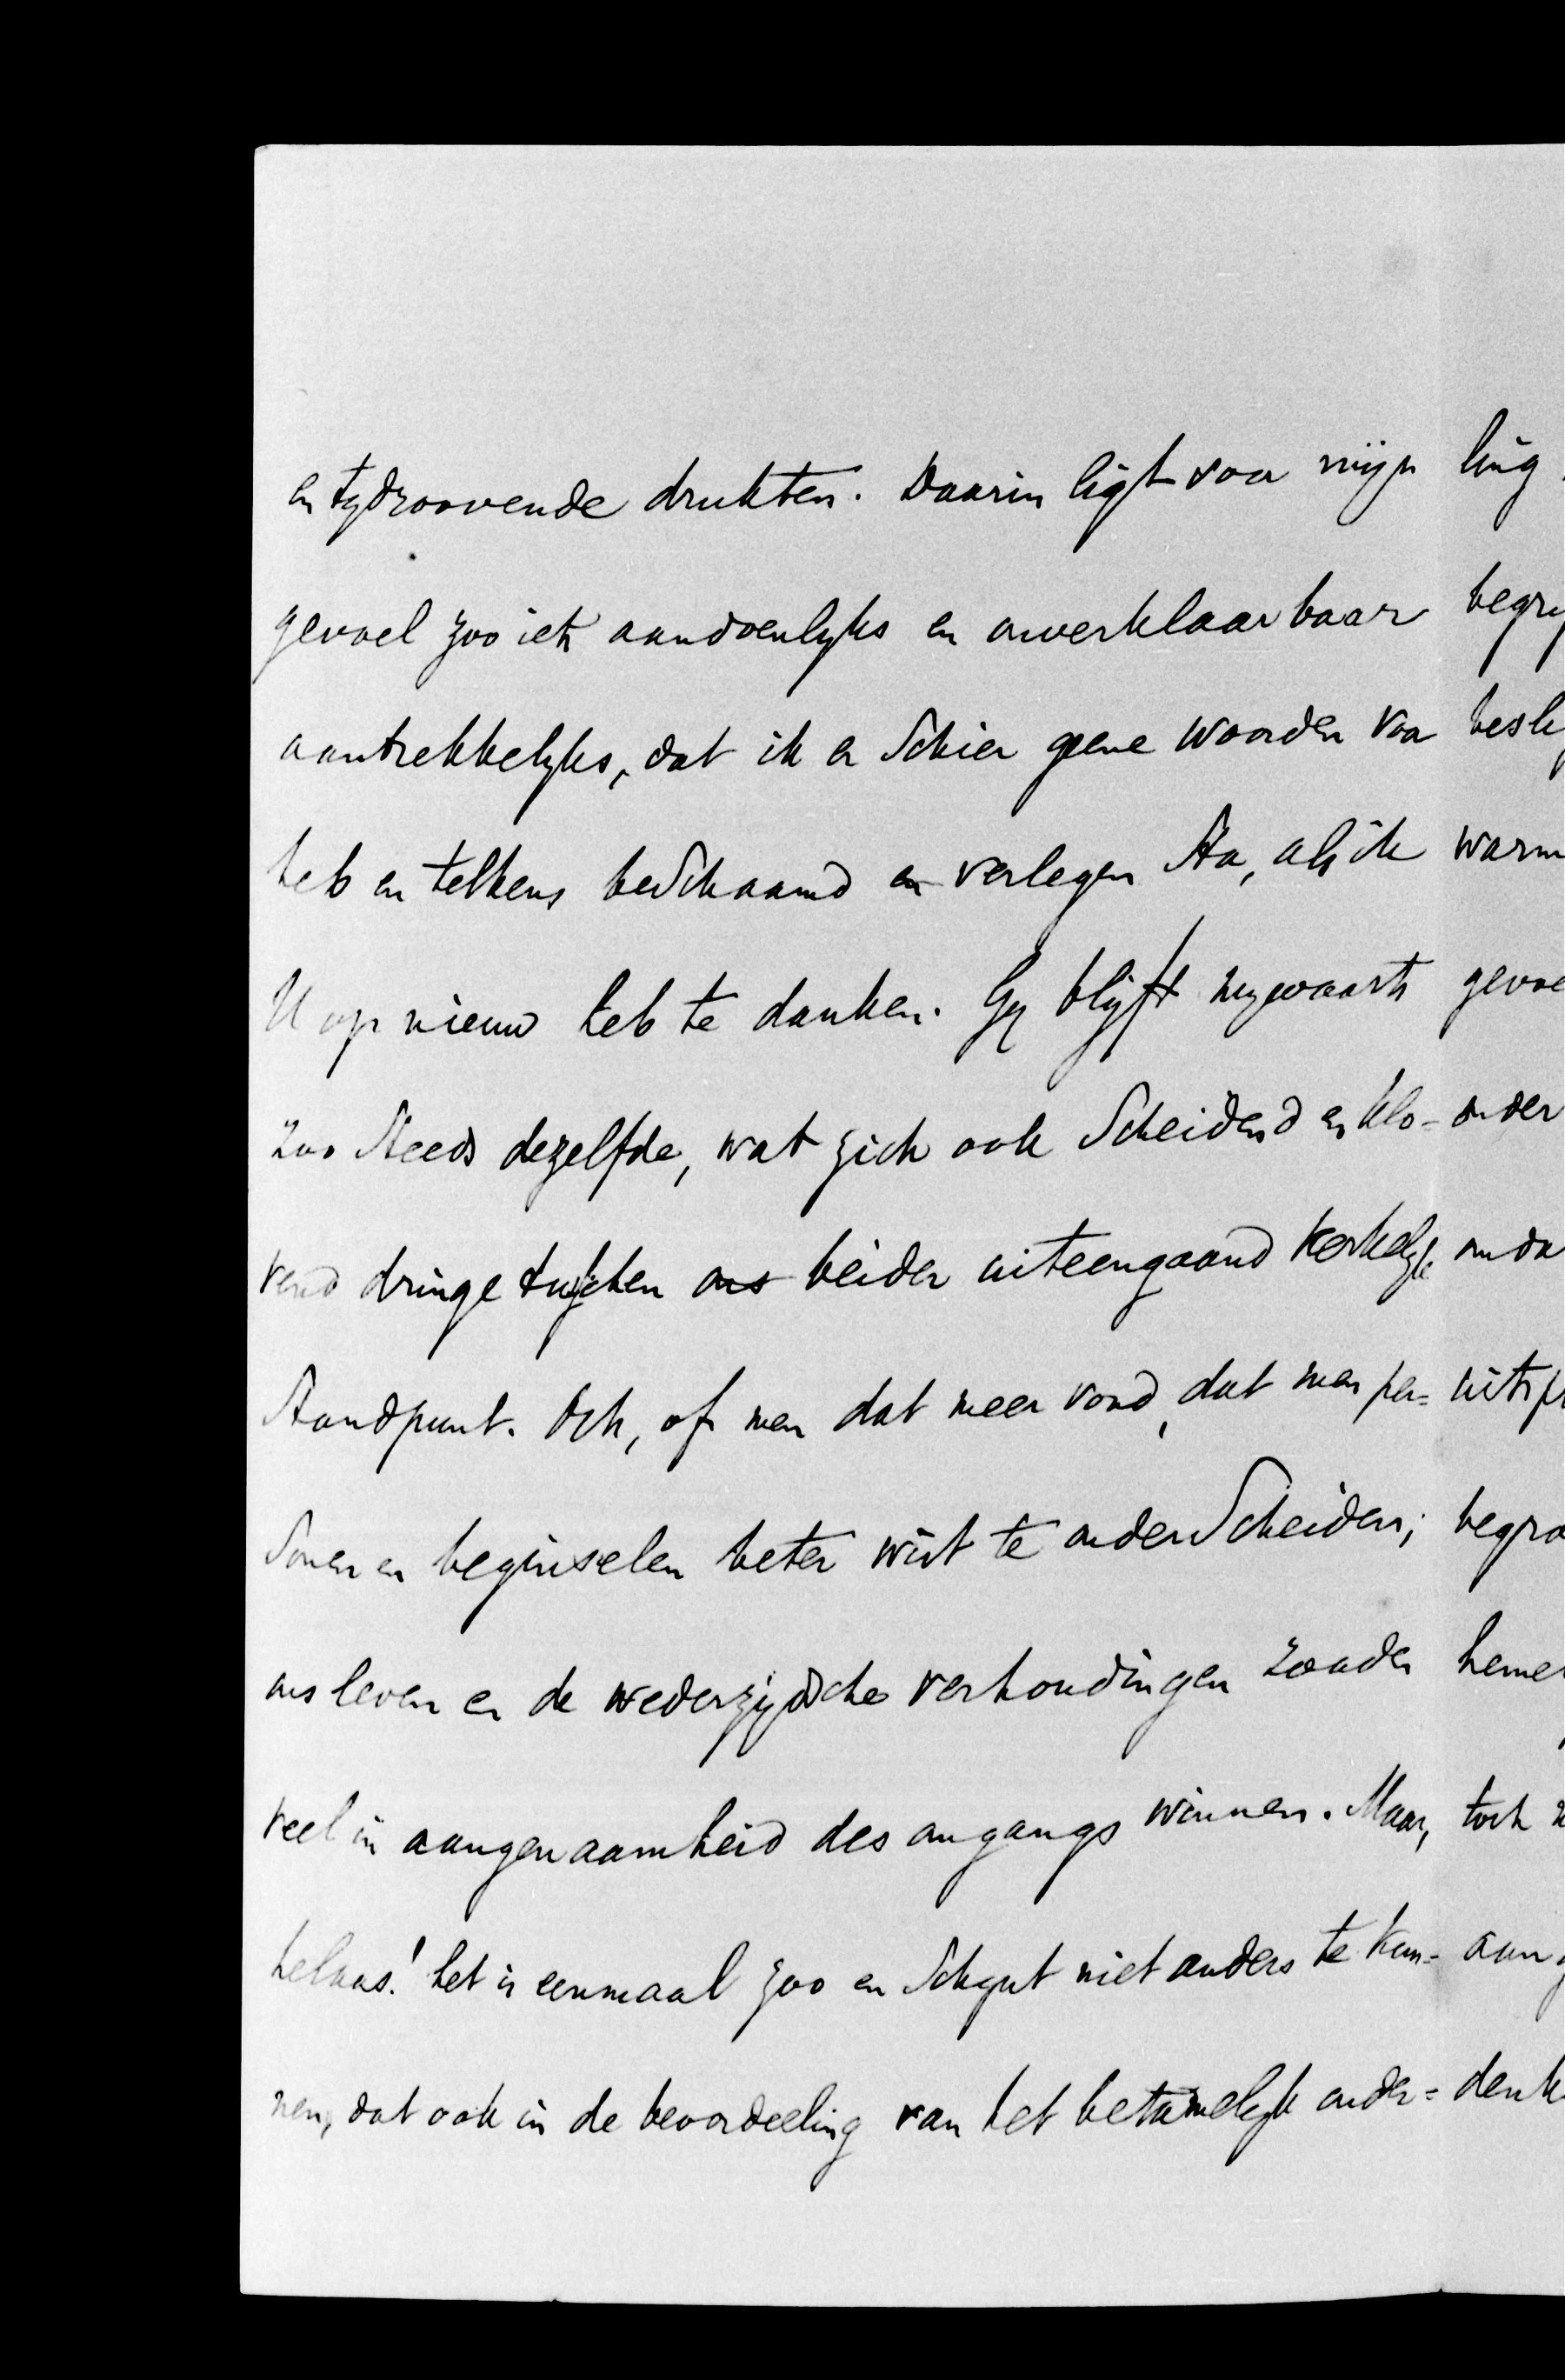 en tydroovende drukten. Daarin ligt voor mijn
gevoel zoo iets aandoenlyks en onverklaarbaar
aantrekkelyks, dat ik er schier geene woorden voor
heb en telkens beschaamd en verlegen sta, als ik
U op nieuw heb te danken. Gy blijft mywaarts
zoo steeds dezelfde, wat zich ook scheidend en klo-
vend dringe tusschen ons beider uiteengaand kerkelyk
standpunt. Och, of men dat meer vond, dat men per-
sonen en beginselen beter wist te onderscheiden;
ons leven en de wederzijdsche verhoudingen zouden
veel in aangenaamheid des omgangs winnen. Maar,
helaas! het is eenmaal zoo en schynt niet anders te kun-
nen, dat ook in de beoordeeling van het betamelyk onder-
ling
begry
warm
gevoe
onder
omda
uitsp
begro
heme
toch
aan
denk